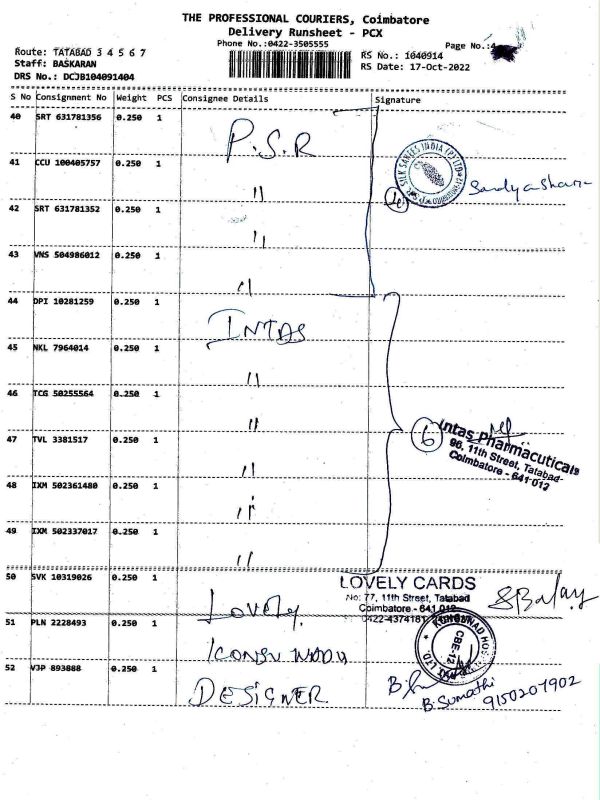 THE PROFESSIONAL COURIERS, Coimbatore
Delivery Runsheet - PCX
Phone No.:0422-3505555
Page No.:4
Route: TATABAD 3 4 5 6 7
Staff: BASKARAN
DRS No.: DCJB104091404
RS No.: 1040914
RS Date: 17-Oct-2022
S No Consignment No Weight PCS Consignee Details Signature
40 SRT 631781356 0.250 1 P.S.R
41 CCU 100405757 0.250 1 "
42 SRT 631781352 0.250 1 "
43 VNS 504986012 0.250 1 "
SILK SAREES INDIA (P) LTD
44 DPI 10281259 0.250 1 INTAS
45 NKL 7964014 0.250 1 "
46 TCG 50255564 0.250 1 "
47 TVL 3381517 0.250 1 "
6
Intas Pharmacuticals
96, 11th Street, Tatabad-
Coimbatore - 641 012
48 IXM 502361480 0.250 1 "
49 IXM 502337017 0.250 1 "
50 SVK 10319026 0.250 1 Lovely
LOVELY CARDS
No: 77, 11th Street, Tatabad
Coimbatore - 641 012
51 PLN 2228493 0.250 1
CBE-12
52 VJP 893888 0.250 1 DESIGNER
B. Sumathi
9150207902